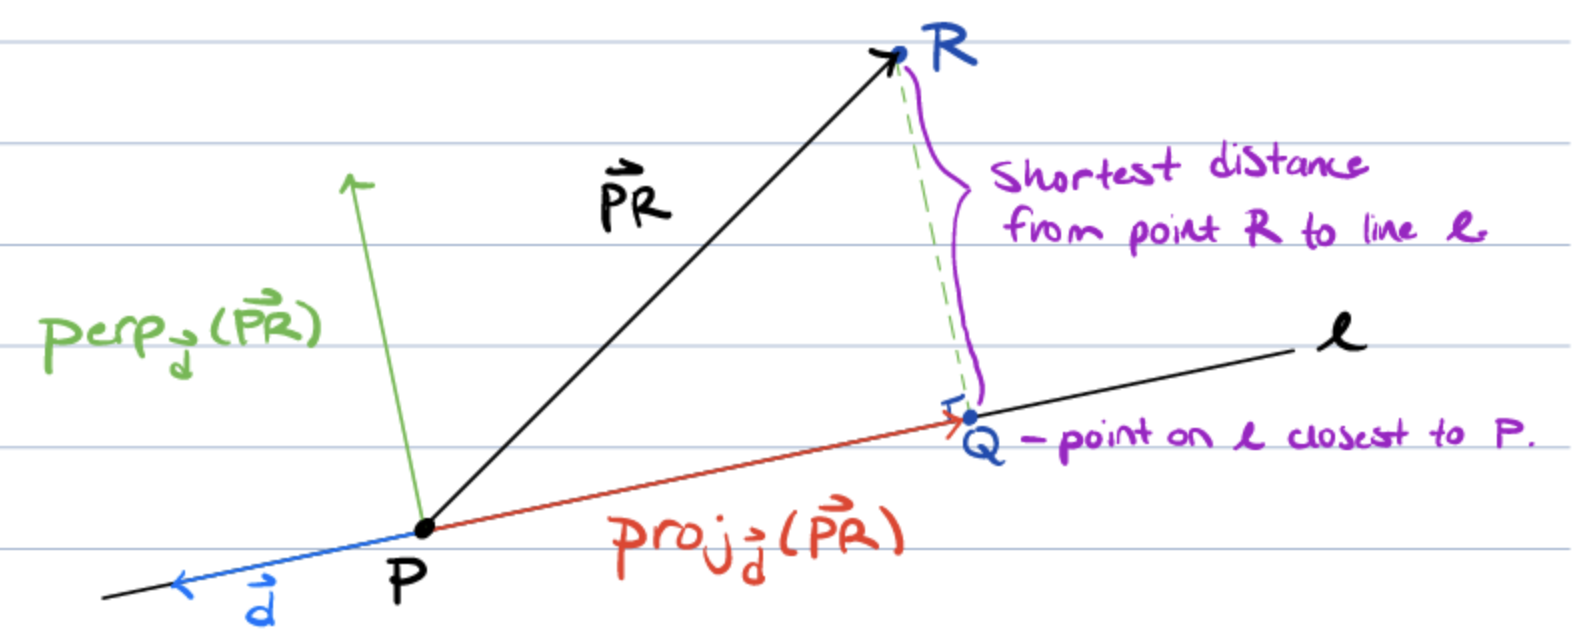 R
P⃗R⃗
Shortest distance
from point R to line ℓ
perp_d⃗ (P⃗R⃗)
ℓ
Q - point on ℓ closest to P.
proj_d⃗ (P⃗R⃗)
P
d⃗